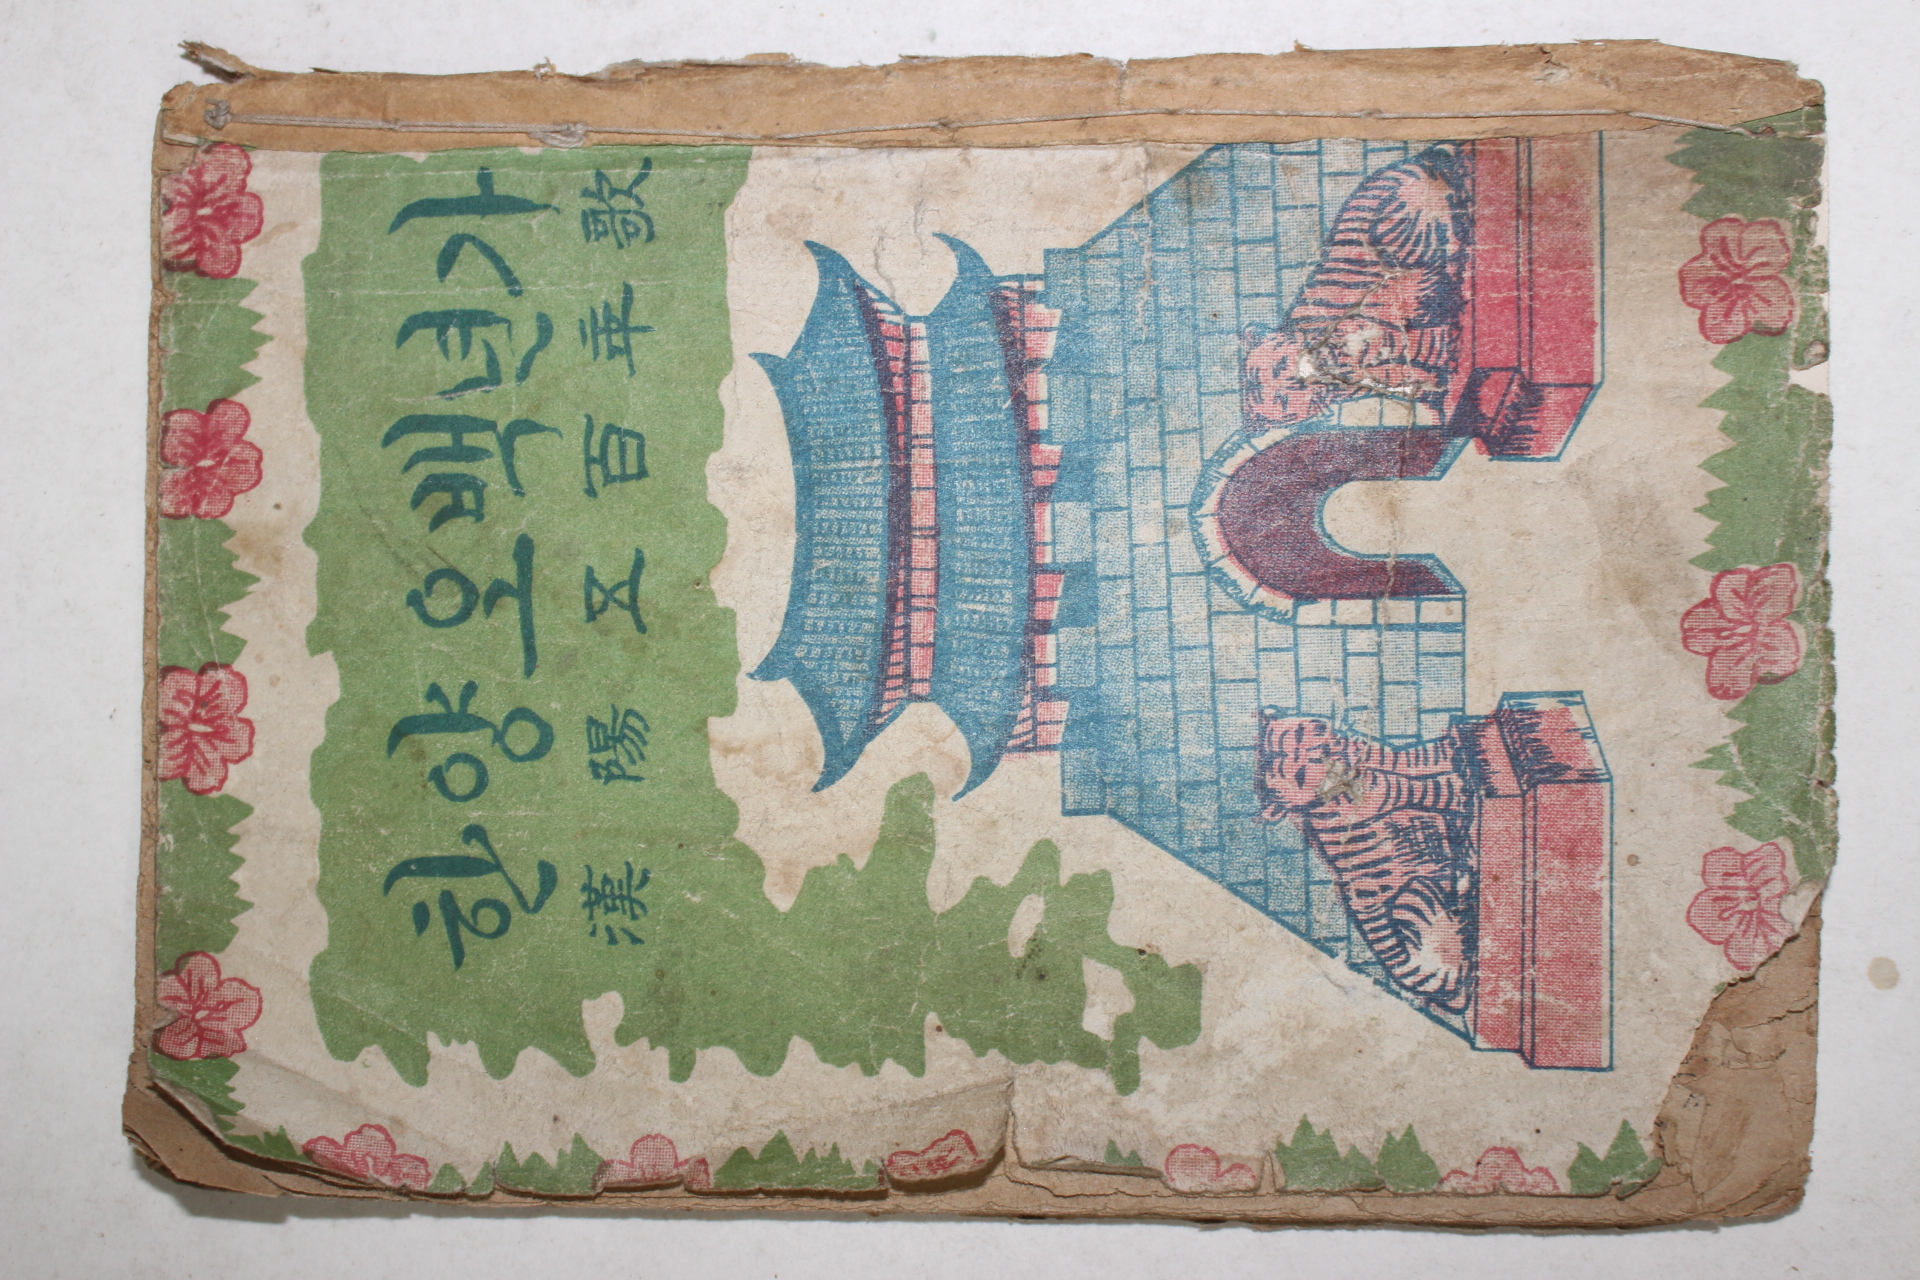 한양오백년가
漢陽五百年歌